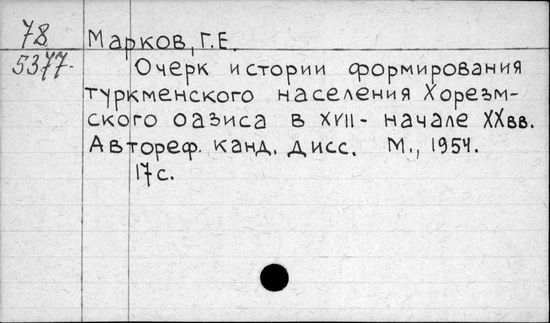 78 Марков, Г.Е.
5377- Очерк истории формирования
туркменского населения Хорезм-
ского оазиса в XVII - начале XXвв.
Автореф. канд. дисс. М., 1954.
17с.